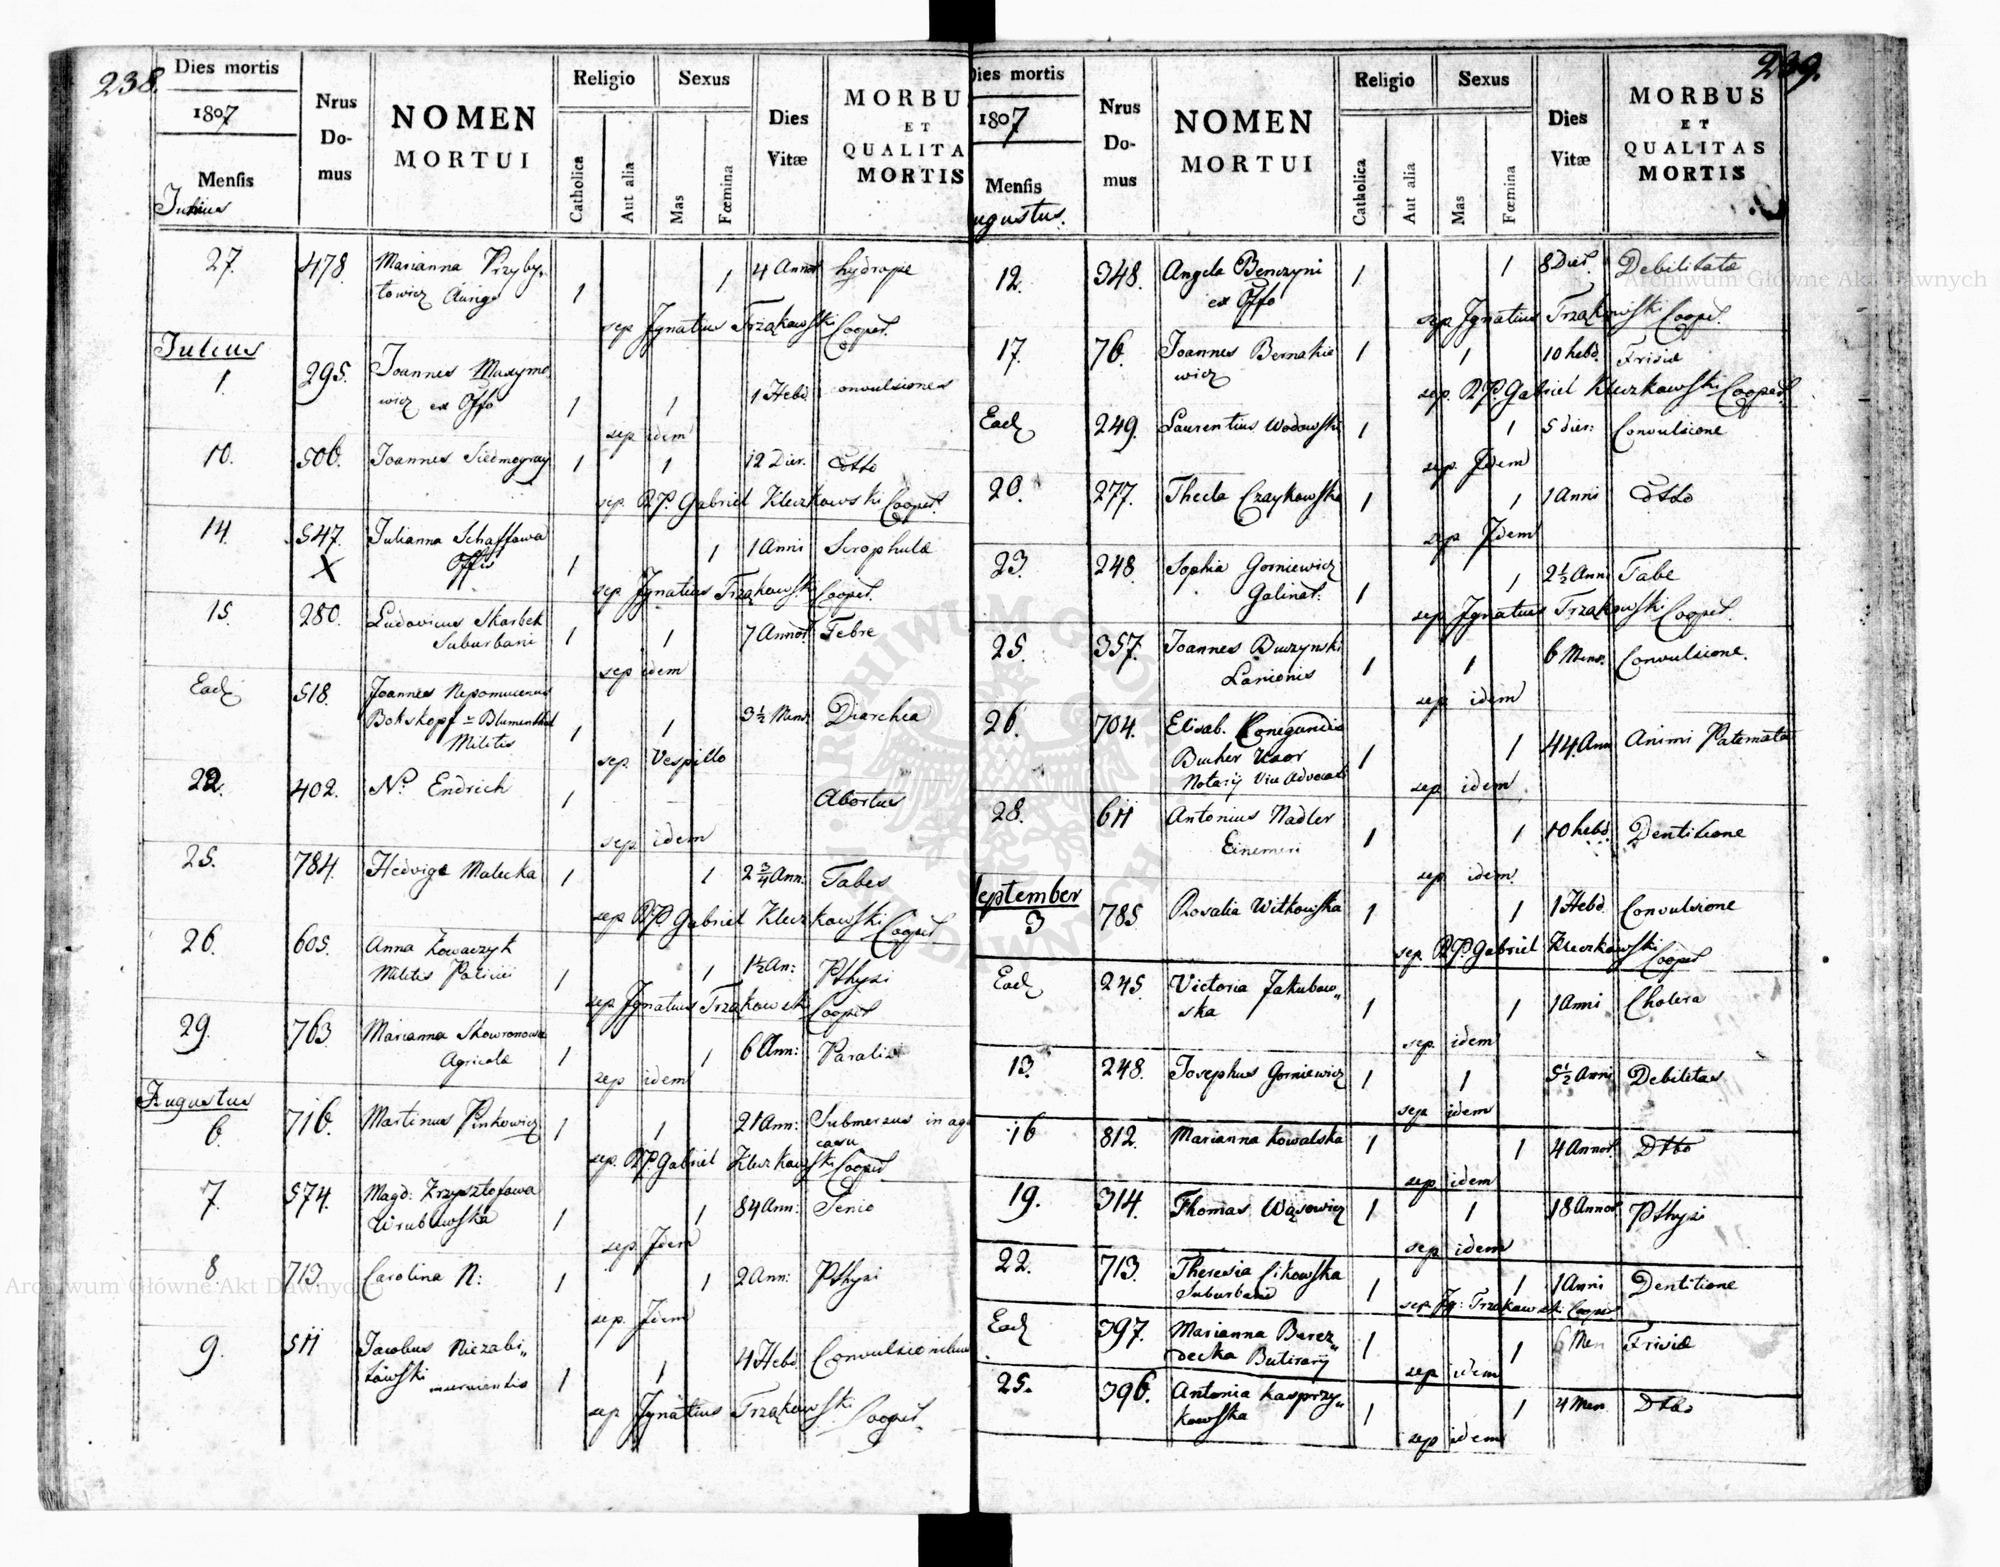 238.
Dies mortis
1807
Mensis
Junius
Nrus Do- mus
NOMEN
MORTUI
Religio
Catholica
Aut alia
Sexus
Mas
Fœmina
Dies Vitæ
MORBU
ET
QUALITA
MORTIS
27. 478 Marianna Przyby„ 1 4 Annor hydrope
towicz Aurigæ 1
sep Ignatius Trzakowski Cooper.
Julius
1 295. Joannes Maxymo 1 Hebd. onvulsiones
wicz ex Offo 1 1
sep idem
10. 506. Joannes Siedmogray 1 1 12 Dier. Dtto
sep. RP. Gabriel Kleczkowski Cooper.
14. 547. Julianna Schaffowa 1 1 Anni Scrophulæ
X Offis 1
sep. Ignatius Trzakowski Cooper.
15. 280. Ludovicus Skarbek 7 Annor Febre
Suburbani 1 1
sep idem
Ead. 518. Joannes Nepomucenus
Bokskopf Blumenthal 1 1 3½ Mens. Diarhea
Militis
sep. Vespillo
22. 402. N. Endrich 1 – – Abortus
sep. idem
25. 784. Hedvige Malecka 1 1 2¾ Ann: Tabes
sep RP Gabriel Kleczkowski Cooper
26. 605. Anna Kowaczyk
Militis 1 1 1½ An: Pthysi
sep Ignatius Trzakowski Cooper
29. 763. Marianna Skowronowa 6 Ann:
Agricolæ 1 1
sep idem
Augustus
6. 716. Martinus Pinkowicz 1 1 21 Ann: Submersus in aq
casu
sep. RP Gabriel Kleczkowski Cooper
7. 574. Magd: Krzysztofowa 84 Ann: Senio
Wrubowska 1 1
sep. Idem
8 713. Carolina N: 1 1 2 Ann: Pthysi
sep. Idem
9. 511 Jacobus Niezabi„ 4 Hebd. Convulsionibus
towski 1 1
sep Ignatius Trzakowski Cooper.
239.
Dies mortis
1807
Mensis
ugustus.
Nrus Do- mus
NOMEN
MORTUI
Religio
Catholica
Aut alia
Sexus
Mas
Fœmina
Dies Vitæ
MORBUS
ET
QUALITAS
MORTIS
12. 348. Angela Benczyni 1 1 8 Dier. Debilitate
ex Offo
sep Ignatius Trzakowski Cooper.
17. 76. Joannes Bernakie 1 1 10 hebd.
wicz
sep. RP. Gabriel Kleczkowski Cooper.
Ead 249. Laurentius Wodowski 1 1 5 dier: Convulsione
sep. Idem
20. 277. Thecla Czaykowska 1 1 1 Anni Dtto
sep. Idem
23. 248. Sophia Gorniewicz 2½ Anni Tabe
1 1
sep. Ignatius Trzakowski Cooper.
25. 357. Joannes Buczynski 6 Mens. Convulsione.
Lanionis 1 1
sep. idem
26. 704. Elisab. Conegundis
Bucher Uxor 1 1 44 Ann Animi Patemate
Notarij Vice Advocati
sep idem
28. 611 Antonius Nadler 10 hebd Dentitione
1 1
sep. idem.
eptember
3 785. Rosalia Witkowska 1 1 1 Hebd. Convulsione
sep. RP. Gabriel Kleczkowski Cooper
Ead 245. Victoria Jakubow„ 1 Anni Cholera
ska 1 1
sep. idem
13. 248. Josephus Gorniewicz 1 1 5½ Anni Debilitas
sep. idem
16 812. Marianna Kowalska 1 1 4 Annor. Dtto
sep idem
19. 314. Thomas Wąsowicz 1 1 18 Annor. Pthysi
sep idem
22. 713. Theresia Cikowska 1 1 1 Anni Dentitione
Suburbani
sep. Ig: Trzakowski Cooper
Ead 397. Marianna Barcz„ 1 1 6 Men
decka Butirarij
sep idem
25. 396. Antonia Kasprzy„ 1 1 4 Men Dtto
kowska
sep idem
Archiwum Główne Akt Dawnych
Archiwum Główne Akt Dawnych
ARCHIWUM GŁÓWNE AKT DAWNYCH